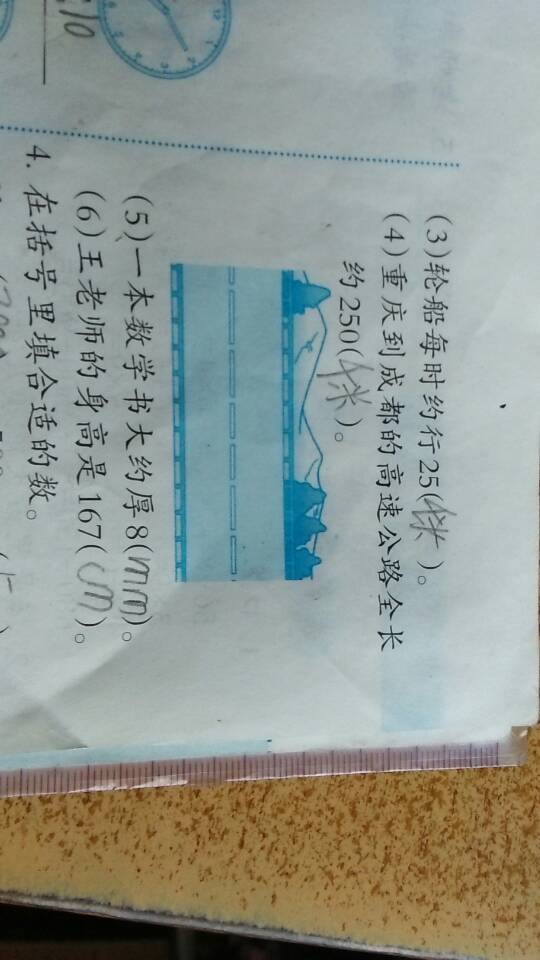 (3)轮船每时约行25(千米)。
(4)重庆到成都的高速公路全长
约250(千米)。
(5)一本数学书大约厚8(mm)。
(6)王老师的身高是167(cm)。
4. 在括号里填合适的数。